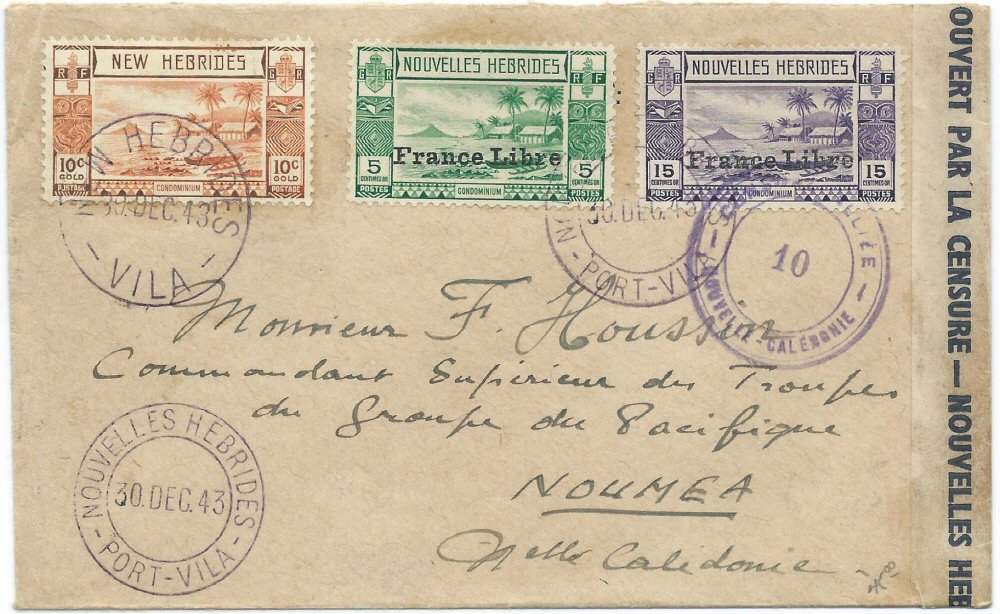 NEW HEBRIDES
R F
10c GOLD
10c GOLD
POSTAGE
CONDOMINIUM
POSTAGE
NOUVELLES HEBRIDES
G R
R F
5 CENTIMES OR
France Libre
5 CENTIMES OR
POSTES
CONDOMINIUM
POSTES
NOUVELLES HEBRIDES
G R
R F
15 CENTIMES OR
France Libre
15 CENTIMES OR
POSTES
CONDOMINIUM
POSTES
NEW HEBRIDES
30.DEC.43
- VILA -
30.DEC.43
- PORT-VILA -
10
NOUVELLE-CALÉDONIE -
Monsieur F. Houssin
Commandant Supérieur des Troupes
du Groupe du Pacifique
NOUMEA
Nelle Calédonie
- NOUVELLES HEBRIDES -
30.DEC.43
PORT-VILA
OUVERT PAR LA CENSURE — NOUVELLES HEB